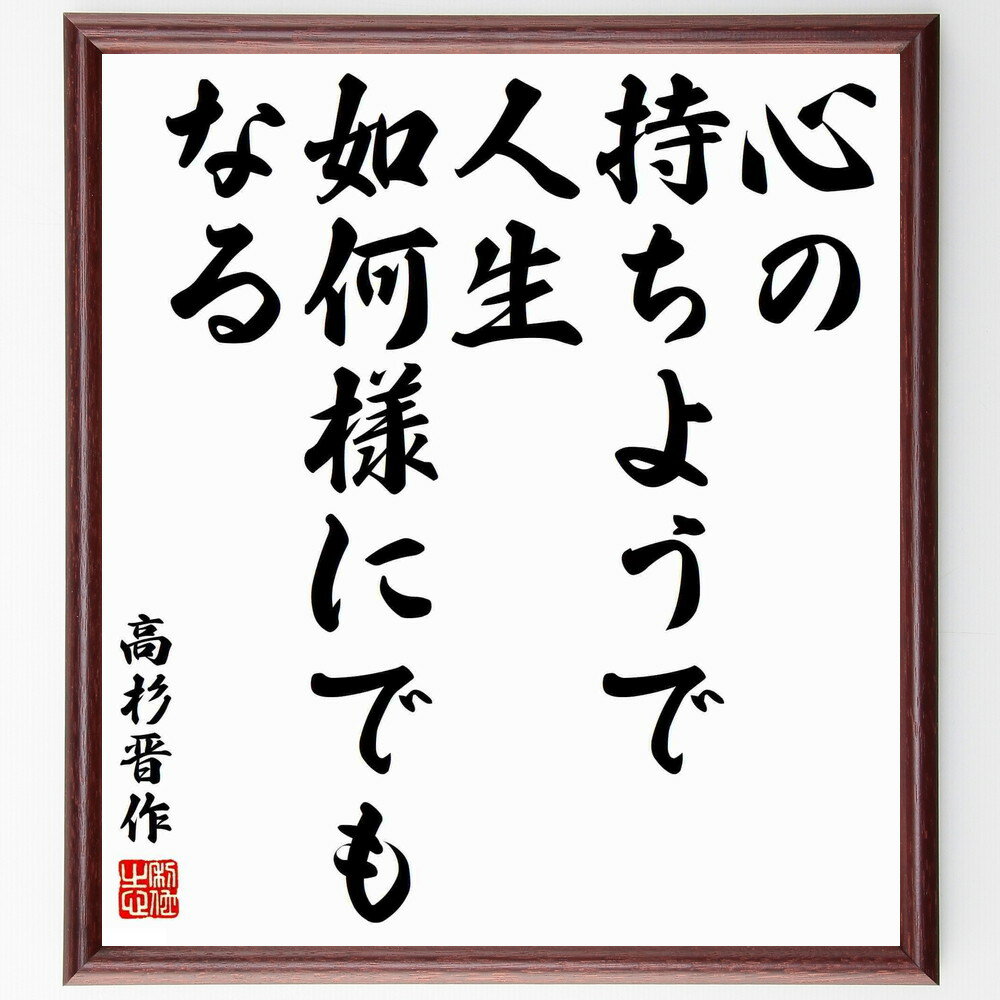 心の
持ちようで
人生
如何様にでも
なる
高杉晋作